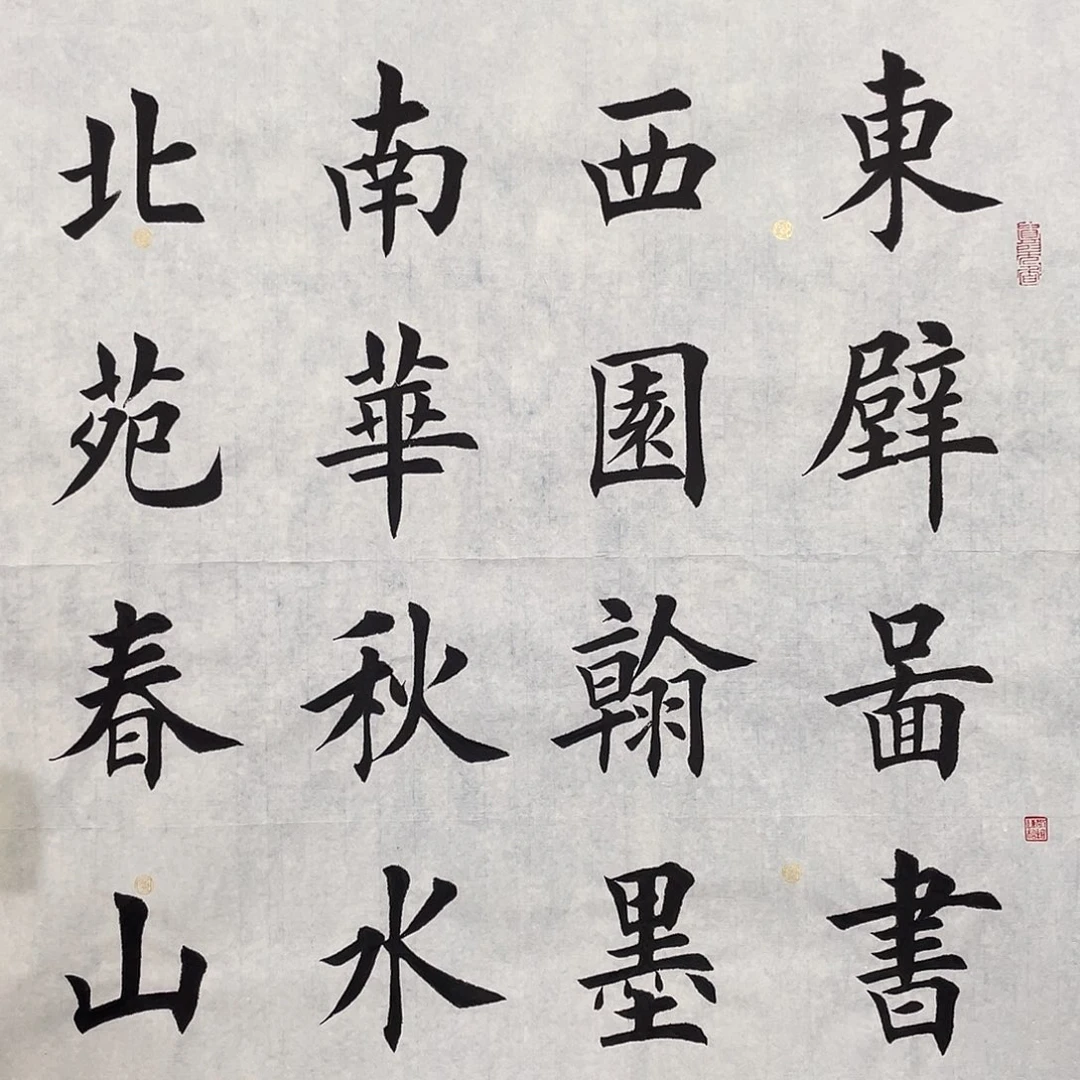 東壁啚書
西園翰墨
南華秋水
北苑春山